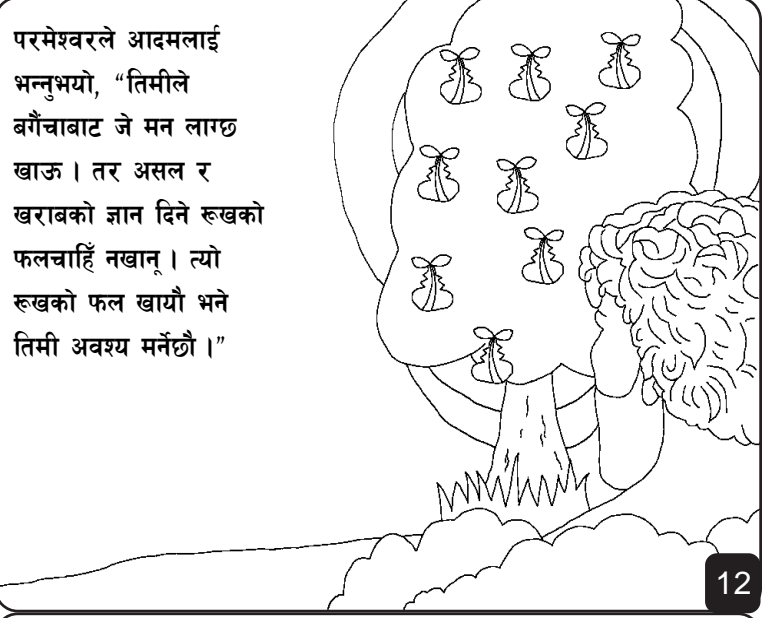 परमेश्वरले आदमलाई
भन्नुभयो, “तिमीले
बगैंचाबाट जे मन लाग्छ
खाऊ । तर असल र
खराबको ज्ञान दिने रूखको
फलचाहिँ नखानू । त्यो
रूखको फल खायौ भने
तिमी अवश्य मर्नेछौ ।”
12